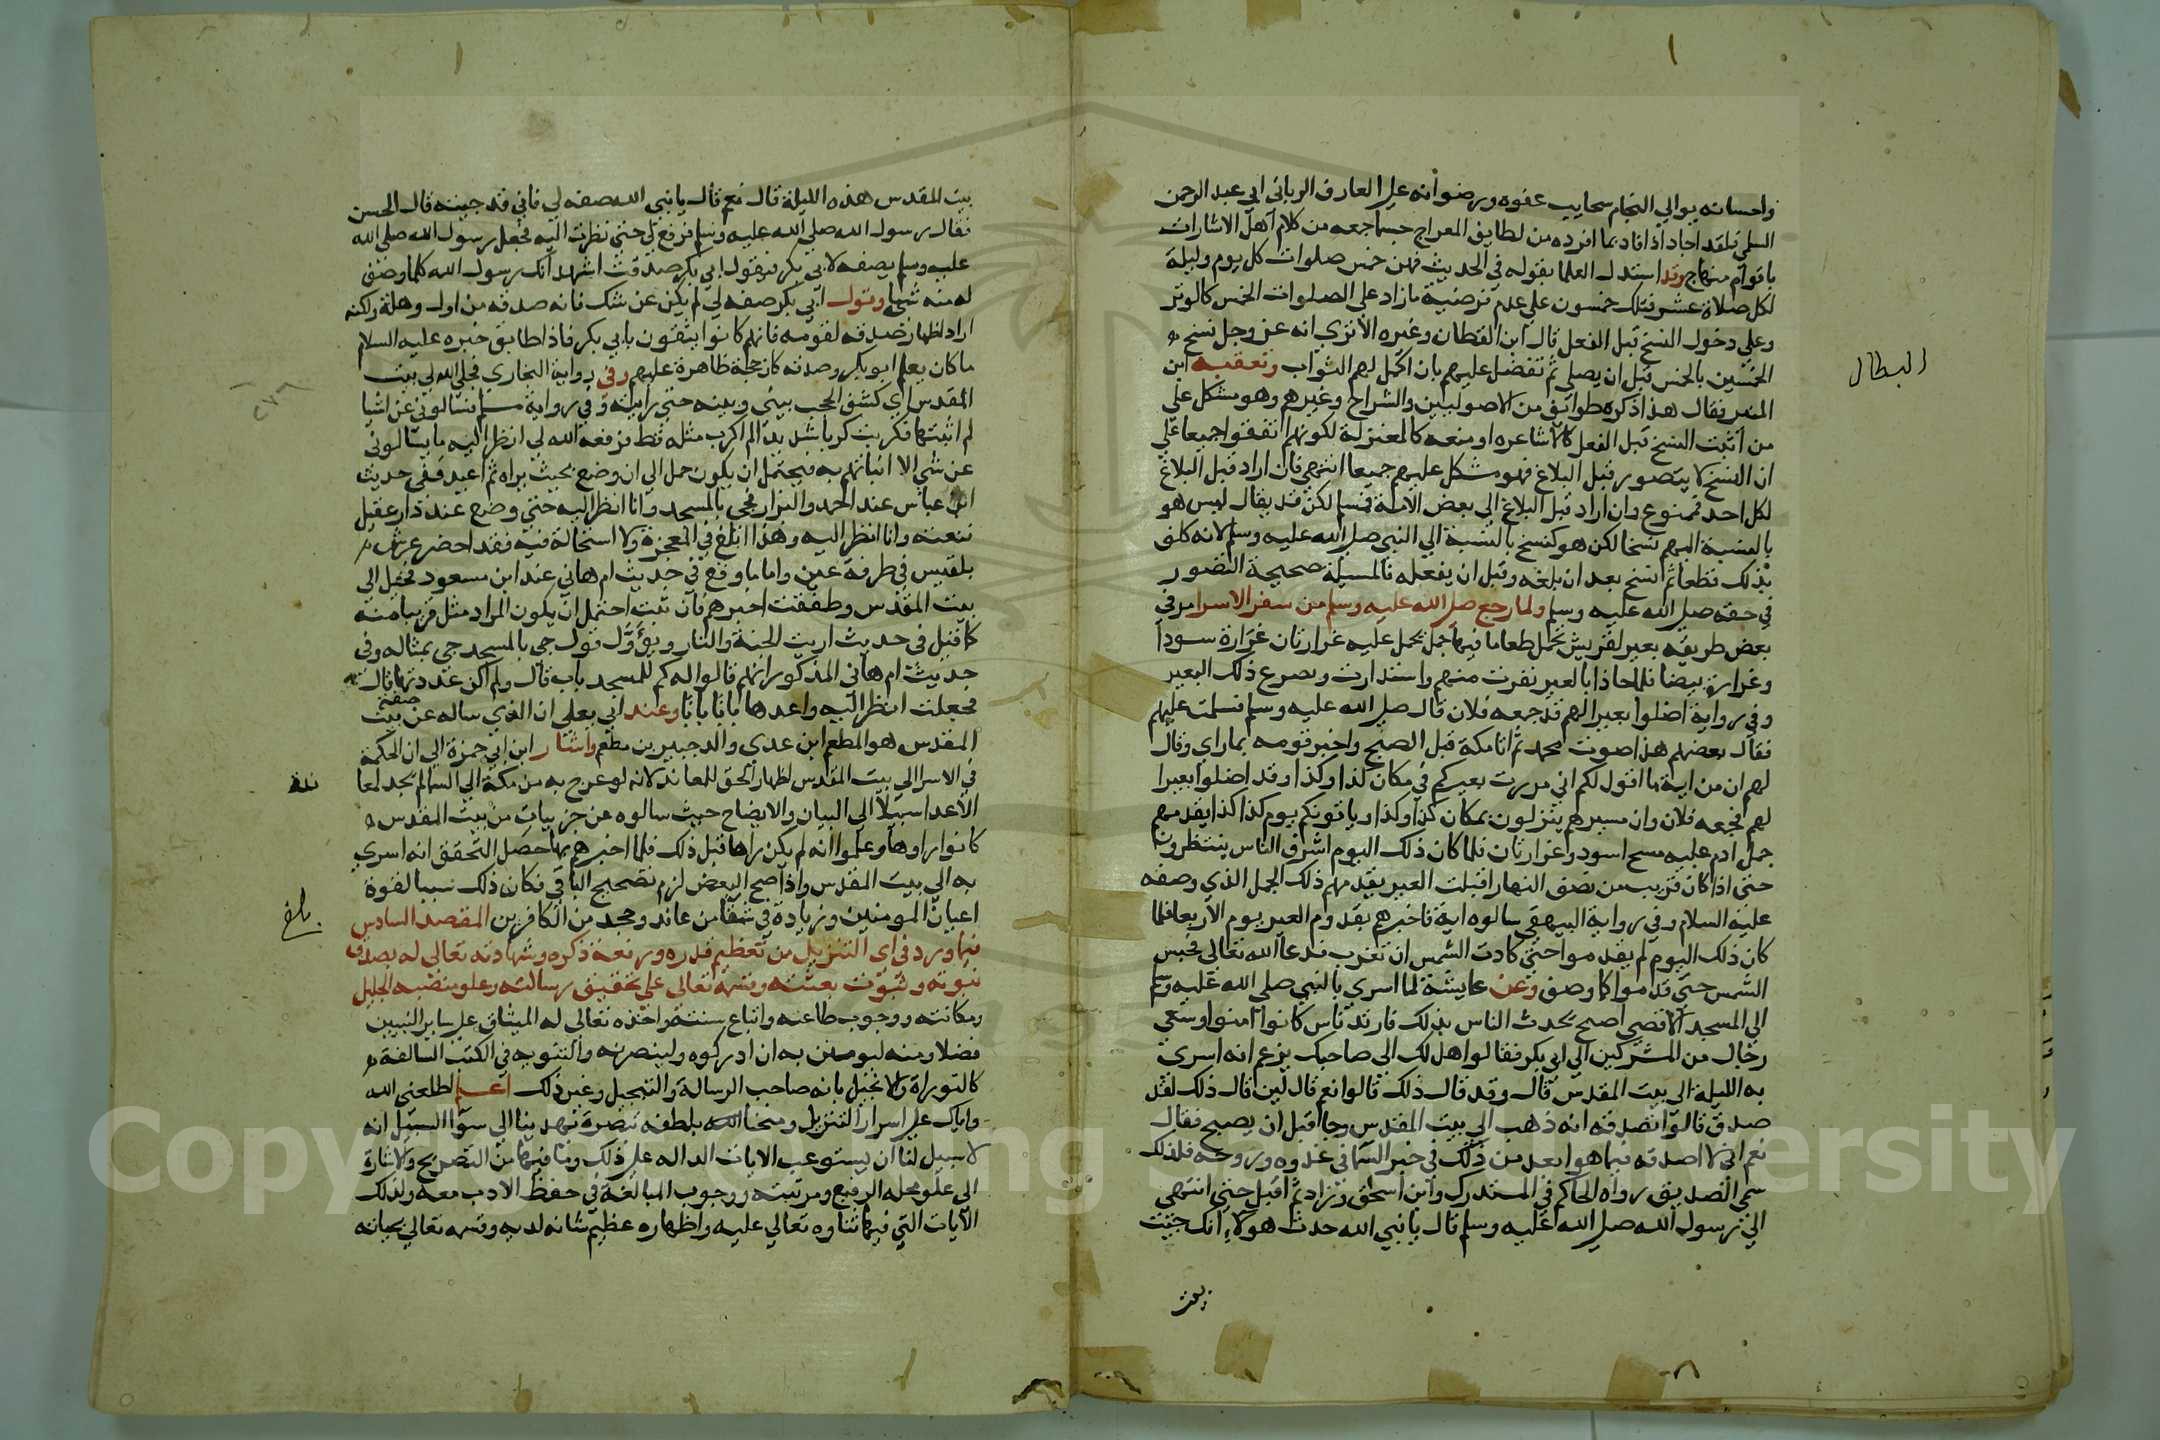 واحسانه يوالي انجام سحايب عفوه ورضوانه علي العارف الرباني ابي عبد الرحمن
السلمي فلقد اجاد اذ افاد بما افرده من لطايف المعراج حسبما جمعه من كلام اهل الاشارات
باقوام منهاج وقد استدل العلما بقوله في الحديث فهن خمس صلوات كل يوم وليلة
لكل صلاة عشر فتلك خمسون علي عدم فرضية ما زاد علي الصلوات الخمس كالوتر
وعلي دخول النسخ قبل الفعل قال ابن القطان وغيره الا تري انه عز وجل نسخ
الخمسين بالخمس قبل ان يصلي ثم تفضل عليهم بان اكمل لهم الثواب وتعقبه ابن
المنير فقال هذا ذكره طوايف من الاصوليين والشراح وغيرهم وهو مشكل علي
من اثبت النسخ قبل الفعل كالاشاعره او منعه كالمعتزلة لكونهم اتفقوا جميعا علي
ان النسخ لا يتصور قبل البلاغ فهو مشكل عليهم جميعا انتهي فان اراد قبل البلاغ
لكل احد فممنوع وان اراد قبل البلاغ الي بعض الامة فمسلم لكن قد يقال ليس هو
بالنسبة اليهم نسخا لكن هو كنسخ بالنسبة الي النبي صلي الله عليه وسلم لانه كلف
بذلك قطعا ثم انسخ بعد ان بلغه وقبل ان يفعله فالمسيلة صحيحة التصور
في حقه صلي الله عليه وسلم ولما رجع صلي الله عليه وسلم من سفر الاسرا مر في
بعض طريقه بعير لقريش تحمل طعاما فيها جمل يحمل عليه غرارتان غرارة سودا
وغرارة بيضا فلما حاذا بالعير نفرت منهم واستدارت وصرع ذلك البعير
وفي رواية اضلوا بعيرا لهم قد جمعه فلان قال صلي الله عليه وسلم فسلمت عليهم
فقال بعضهم هذا صوت محمد ثم اتا مكة قبل الصبح واخبر قومه بما راي وقال
لهم ان من اية ما اقول لكم اني مررت بعيركم في مكان كذا وكذا وقد اضلوا بعيرا
لهم فجمعه فلان وان مسيرهم ينزلون بمكان كذا وكذا وياتونكم يوم كذا كذا يقدمهم
جمل ادم عليه مسح اسود وغرارتان فلما كان ذلك اليوم اشرف الناس ينتظرون
حتي اذا كان قريب من نصف النهار اقبلت العير يقدمهم ذلك الجمل الذي وصفه
عليه السلام وفي رواية البيهقي سالوه اية فاخبرهم بقدوم العير يوم الاربعا فلما
كان ذلك اليوم لم يقدموا حتي كادت الشمس ان تغرب فدعا الله تعالي فحبس
الشمس حتي قدموا كما وصف وعن عايشة لما اسري بالنبي صلي الله عليه وسلم
الي المسجد الاقصي اصبح يحدث الناس بذلك فارتد ناس كانوا امنوا وسعي
رجال من المشركين الي ابي بكر فقالوا هل لك الي صاحبك يزعم انه اسري
به الليلة الي بيت المقدس قال وقد قال ذلك قالوا نعم قال لين قال ذلك لقد
صدق قالوا تصدقه انه ذهب الي بيت المقدس وجا قبل ان يصبح فقال
نعم اني لا اصدقه فيما هو ابعد من ذلك في خبر السما في غدوه وروحه فلذلك
سمي الصديق رواه الحاكم في المستدرك وابن اسحق وزاد ثم اقبل حتي انتهي
الي رسول الله صلي الله عليه وسلم قال يا نبي الله حدث هولاء انك جيت
البطال
بيت المقدس هذه الليلة قال نعم قال يا نبي الله صفه لي فاني قد جيته قال الحسن
فقال رسول الله صلي الله عليه وسلم فرفع لي حتي نظرت اليه فجعل رسول الله صلي الله
عليه وسلم يصفه لابي بكر فيقول ابي بكر صدقت اشهد انك رسول الله كلما وصف
له منه شيا وقول ابي بكر صفه لي لم يكن عن شك فانه صدقه من اول وهلة ولكنه
اراد اظهار صدقه لقومه فانهم كانوا يثقون بابي بكر فاذا طابق خبره عليه السلام
ما كان يعلم ابو بكر وصدقه كان حجة ظاهرة عليهم وفي رواية البخاري فجلي الله لي بيت
المقدس اي كشف الحجب بيني وبينه حتي رايته وفي رواية مسلم فسالوني عن اشيا
لم اثبتها فكربت كربا شديدا لم اكرب مثله قط فرفعه الله لي انظر اليه ما يسالوني
عن شي الا انباتهم به فيحتمل ان يكون حمل الي ان وضع بحيث يراه ثم اعيد ففي حديث
ابن عباس عند احمد والبزار فجي بالمسجد وانا انظر اليه حتي وضع عند دار عقيل
فنعته وانا انظر اليه وهذا ابلغ في المعجزة ولا استحالة فيه فقد احضر عرش
بلقيس في طرفة عين واما ما وقع في حديث ام هاني عند ابن مسعود فخيل الي
بيت المقدس وطفقت اخبرهم فان ثبت احتمل ان يكون المراد مثل قريبا منه
كما قيل في حديث اريت الجنة والنار ويؤول قول جي بالمسجد جي بمثاله وفي
حديث ام هاني المذكور انهم قالوا له كم للمسجد باب قال ولم اكن عددتها قال
فجعلت انظر اليه واعدها بابا بابا وعند ابي يعلي ان الذي ساله عن صفة بيت
المقدس هو المطعم ابن عدي والد جبير بن مطعم واشار ابن ابي جمرة الي ان الحكمة
في الاسرا الي بيت المقدس اظهار الحق للمعاند لانه لو عرج به من مكة الي السما لم يجد لمعا
ندة
الاعدا سبيلا الي البيان والايضاح حيث سالوه عن جزييات من بيت المقدس
كانوا راوها وعلموا انه لم يكن راها قبل ذلك فلما اخبرهم بها حصل التحقق انه اسري
به الي بيت المقدس واذا صح البعض لزم تصحيح الباقي فكان ذلك سببا لقوة
ايمان المومنين وزيادة في شقا من عاند وجحد من الكافرين المقصد السادس
بلغ
فيما ورد في اي التنزيل من تعظيم قدره ورفعة ذكره وشهادته تعالي له بصدق
نبوته وثبوت بعثته وقسمه تعالي علي تحقيق رسالته وعلو منصبه الجليل
ومكانته ووجوب طاعته واتباع سنته واخذه تعالي له الميثاق علي ساير النبيين
فضلا ومنه ليومنن به ان ادركوه ولينصرنه والتنويه في الكتب السالفة
كالتوراة والانجيل بانه صاحب الرسالة والتبجيل وغير ذلك اعلم اطلعني الله
واياك علي اسرار التنزيل ومنحنا الله بلطفه تبصرة تهدينا الي سوا السبيل انه
لا سبيل لنا ان يستوعب الايات الداله علي ذلك وما فيها من التصريح والاشارة
الي علو محله الرفيع ومرتبته ووجوب المبالغة في حفظ الادب معه ولذلك
الايات التي فيها ثناوه تعالي عليه واظهاره عظيم شانه لديه وقسمه تعالي بحياته
Copyright © King Saud University